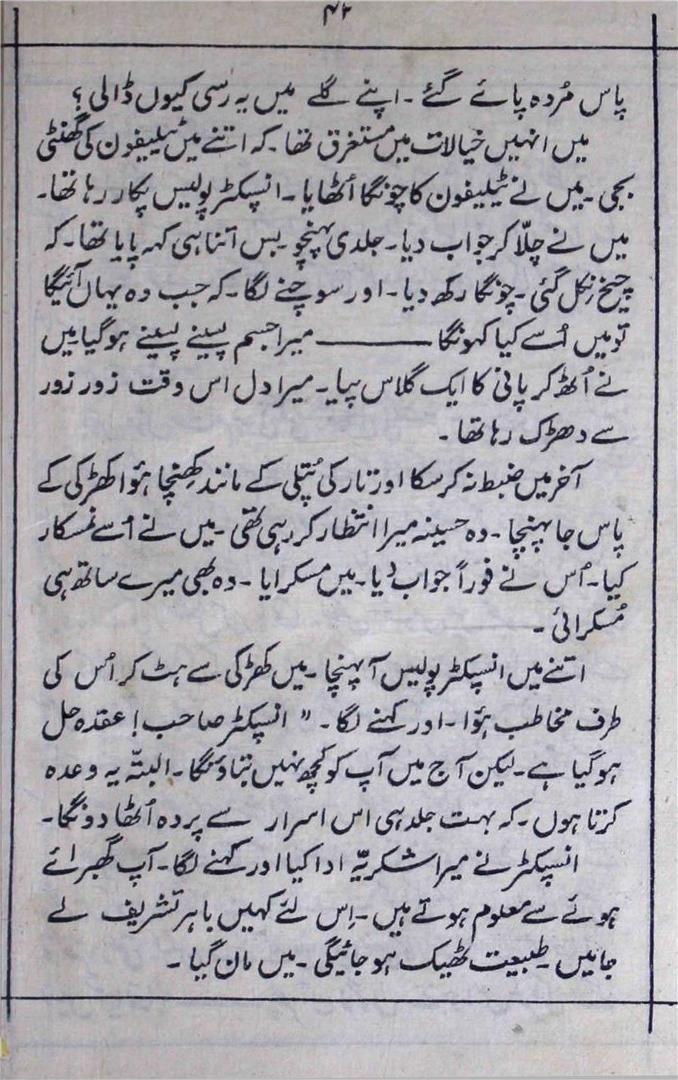 ۴۲
پاس مُردہ پائے گئے ۔ اپنے گلے میں یہ رَسی کیوں ڈالی ؟
میں انہیں خیالات میں مستغرق تھا ۔ کہ اتنے میں ٹیلیفون کی گھنٹی
بجی ۔ میں نے ٹیلیفون کا چونگا اُٹھایا ۔ انسپکٹر پولیس پکار رہا تھا ۔
میں نے چلّا کر جواب دیا ۔ جلدی پہنچو بس اتنا ہی کہہ پایا تھا ۔ کہ
چیخ نِکل گئی ۔ چونگا رکھ دیا ۔ اور سوچنے لگا ۔ کہ جب وہ یہاں آئیگا
تو میں اُسے کیا کہونگا ——— میرا جسم پسینے پسینے ہو گیا میں
نے اُٹھ کر پانی کا ایک گلاس پیا ۔ میرا دل اس وقت زور زور
سے دھڑک رہا تھا ۔
آخر میں ضبط نہ کر سکا اور تار کی پُتلی کے مانند کھِنچا ہؤا کھڑکی کے
پاس جا پہنچا ۔ وہ حسینہ میرا انتظار کر رہی تھی ۔ میں نے اُسے نمسکار
کیا ۔ اُس نے فوراً جواب دیا ۔ میں مسکرایا ۔ وہ بھی میرے ساتھ ہی
مُسکرائی ۔
اتنے میں انسپکٹر پولیس آ پہنچا ۔ میں کھڑکی سے ہٹ کر اُس کی
طرف مخاطب ہؤا ۔ اور کہنے لگا ۔ " انسپکٹر صاحب! عقدہ حل
ہو گیا ہے ۔ لیکن آج میں آپ کو کُچھ نہیں بتاؤنگا ۔ البتّہ یہ وعدہ
کرتا ہوں ۔ کہ بہت جلد ہی اس اسرار سے پردہ اُٹھا دونگا ۔
انسپکٹر نے میرا شکریّہ ادا کیا اور کہنے لگا ۔ آپ گھبرائے
ہوئے سے معلوم ہوتے ہیں ۔ اِس لئے کہیں باہر تشریف لے
جائیں ۔ طبیعت ٹھیک ہو جائیگی ۔ میں مان گیا ۔